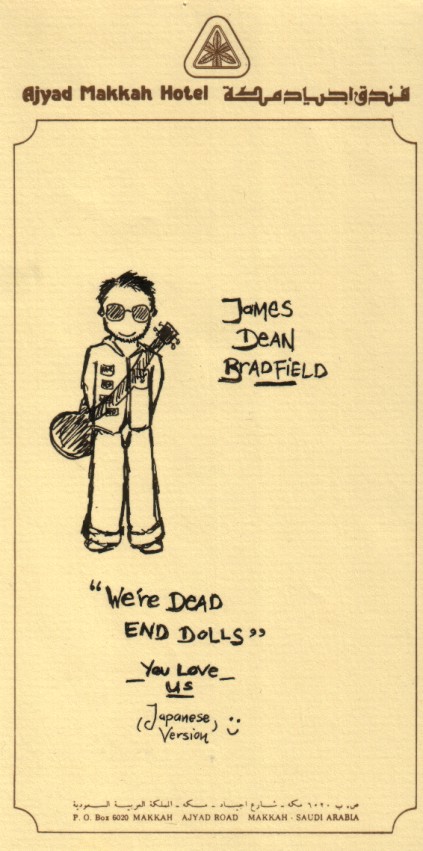 Ajyad Makkah Hotel فندق اجياد مكة
JAMES
DEAN
BRADFIELD
"We're DEAD
END DOLLS"
_You Love_
us
(Japanese
Version) :)
ص. ب ٦٠٢٠ مكة - شارع اجياد - مكة - المملكة العربية السعودية
P. O. Box 6020 MAKKAH AJYAD ROAD MAKKAH - SAUDI ARABIA